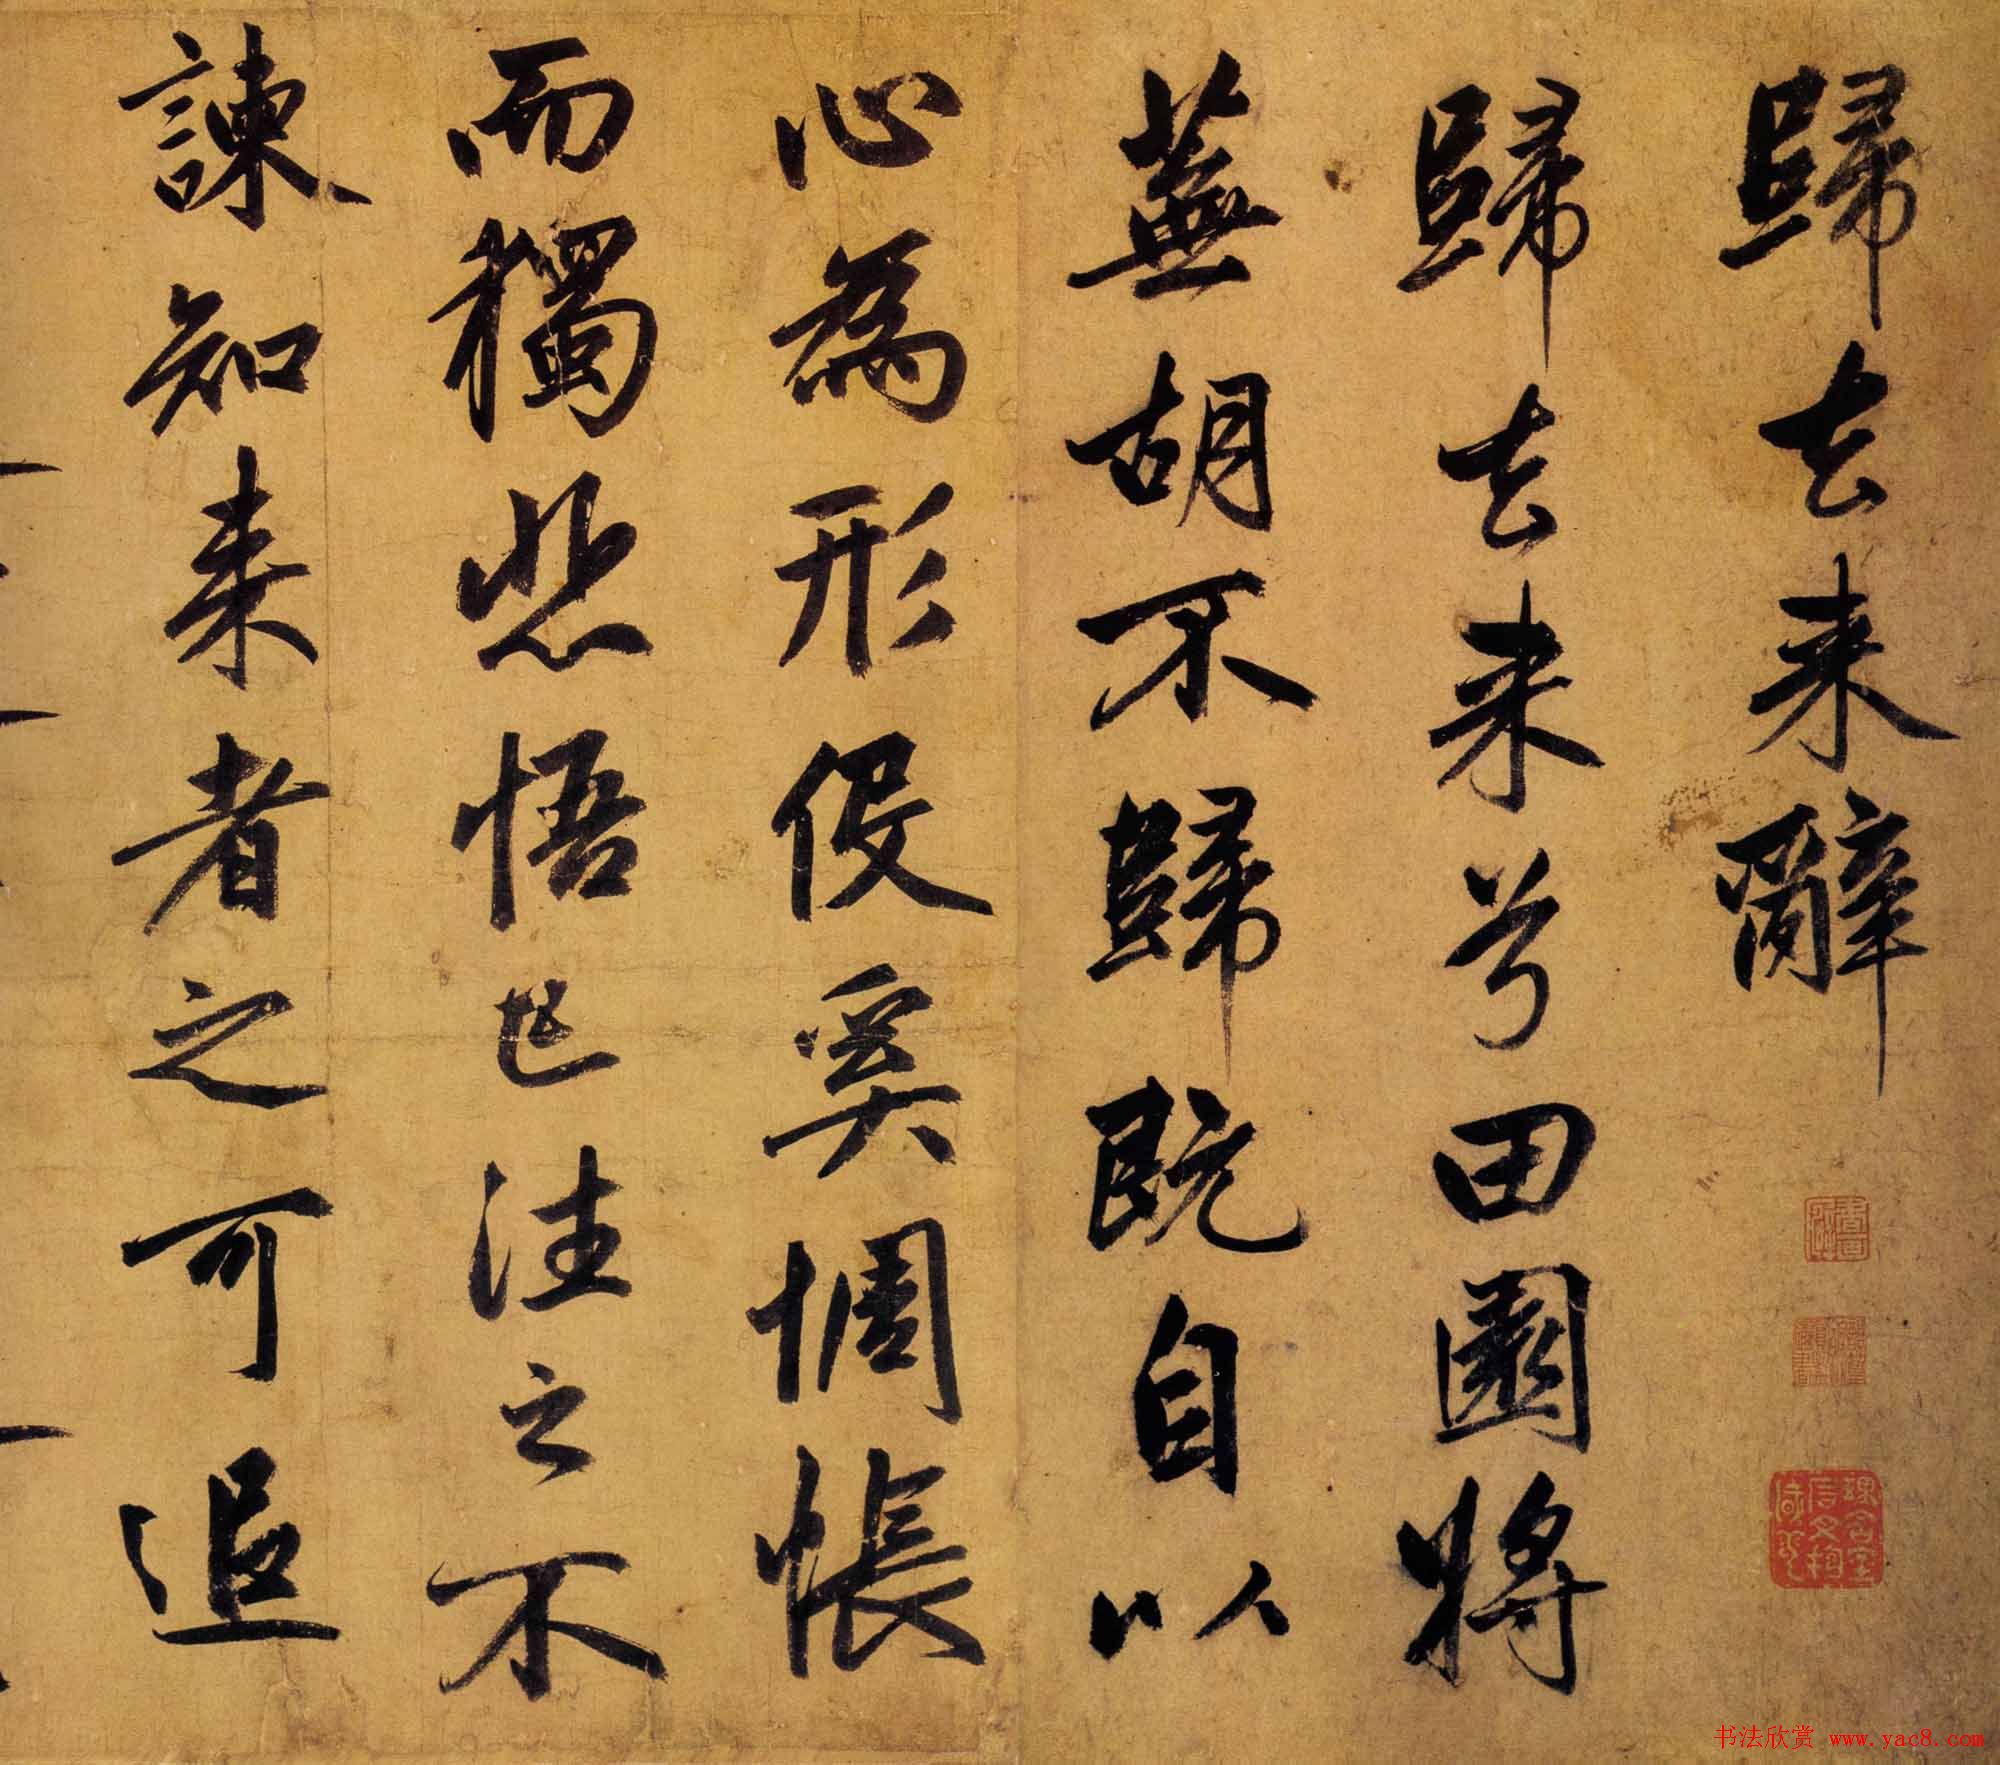 歸去来辭
歸去来兮田園將
蕪胡不歸既自以
心為形伇奚惆悵
而獨悲悟已往之不
諫知来者之可追
书法欣赏 www.yac8.com